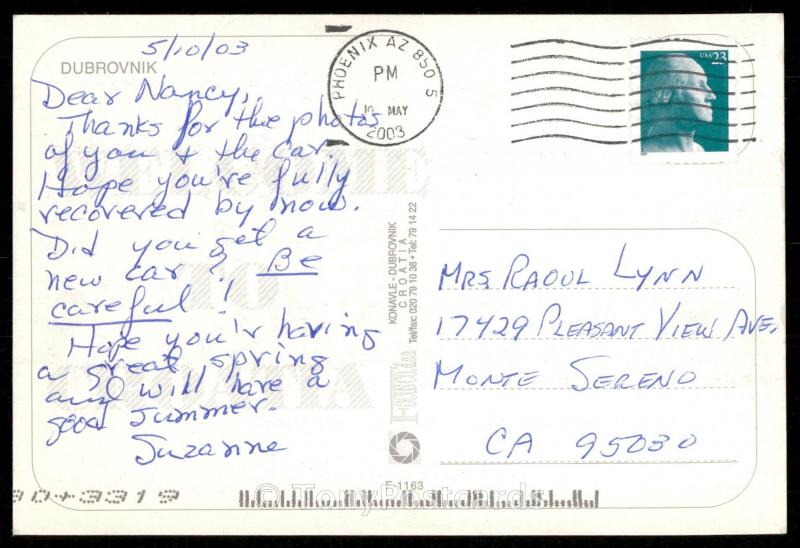 5/10/03
DUBROVNIK
Dear Nancy,
Thanks for the photos
of you + the car.
Hope you're fully
recovered by now.
Did you get a
new car? Be
careful!
Hope you'r having
a great spring
and will have a
good summer.
Suzanne
WELCOME
TO
CROATIA
PHOENIX AZ 850 5
PM
10 MAY
2003
USA 23
KONAVLE - DUBROVNIK
CROATIA
Tel/fax: 020 79 10 38 • Tel: 79 14 22
Mrs. Raoul Lynn
17429 Pleasant View Ave.
Monte Sereno
CA 95030
F-1163
80+3319
© TonyPostcards